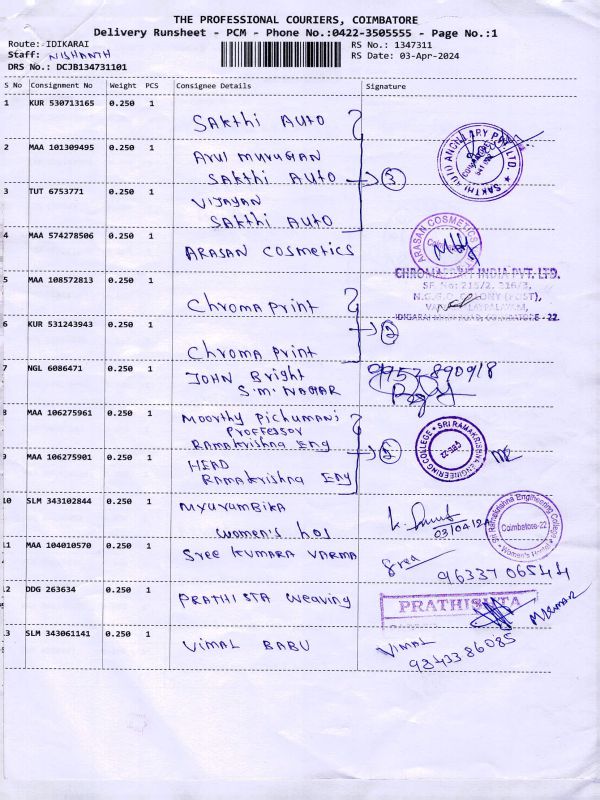 THE PROFESSIONAL COURIERS, COIMBATORE
Delivery Runsheet - PCM - Phone No.:0422-3505555 - Page No.:1
Route: IDIKARAI RS No.: 1347311
Staff: NISHANTH RS Date: 03-Apr-2024
DRS No.: DCJB134731101
S No Consignment No Weight PCS Consignee Details Signature
1 KUR 530713165 0.250 1
Sakthi Auto
2 MAA 101309495 0.250 1
Arul Murugan
Sakthi Auto
3
3 TUT 6753771 0.250 1
Vijayan
Sakthi Auto
4 MAA 574278506 0.250 1
Arasan Cosmetics
ARASAN COSMETICS
5 MAA 108572813 0.250 1
CHROMAPRINT INDIA PVT. LTD.
SF. No: 215/2, 216/3,
Chroma Print
IDIGARAI ROAD, COIMBATORE - 22.
6 KUR 531243943 0.250 1
2
Chroma Print
7 NGL 6086471 0.250 1
John Bright
S.M. Nagar
99578 90918
8 MAA 106275961 0.250 1
Moorthy Pichumani
Proffessor
Ramakrishna Eng
SRI RAMAKRISHNA ENGINEERING COLLEGE
CBE-22
9 MAA 106275901 0.250 1
2
Head
Ramakrishna Eng
10 SLM 343102844 0.250 1
Myurumbika
Women's hos
03/04/24
Sri Ramakrishna Engineering College
Coimbatore-22
Women's Hostel
11 MAA 104010570 0.250 1
Sree Kumara Varma
Sree
96337 06544
12 DDG 263634 0.250 1
Prathista Weaving
PRATHISHTA
13 SLM 343061141 0.250 1
Vimal Babu
Vimal
9843386085